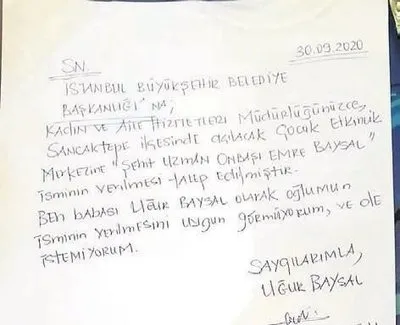 30.09.2020
SN.
İSTANBUL BÜYÜKŞEHİR BELEDİYE
BAŞKANLIĞI'NA,
KADIN VE AİLE HİZMETLERİ MÜDÜRLÜĞÜNÜZCE,
SANCAKTEPE İLÇESİNDE AÇILACAK ÇOCUK ETKİNLİK
MERKEZİNE "ŞEHİT UZMAN ONBAŞI EMRE BAYSAL"
İSMİNİN VERİLMESİ TALEP EDİLMİŞTİR.
BEN BABASI UĞUR BAYSAL OLARAK OĞLUMUN
İSMİNİN VERİLMESİNİ UYGUN GÖRMÜYORUM, VE DE
İSTEMİYORUM.
SAYGILARIMLA,
UĞUR BAYSAL